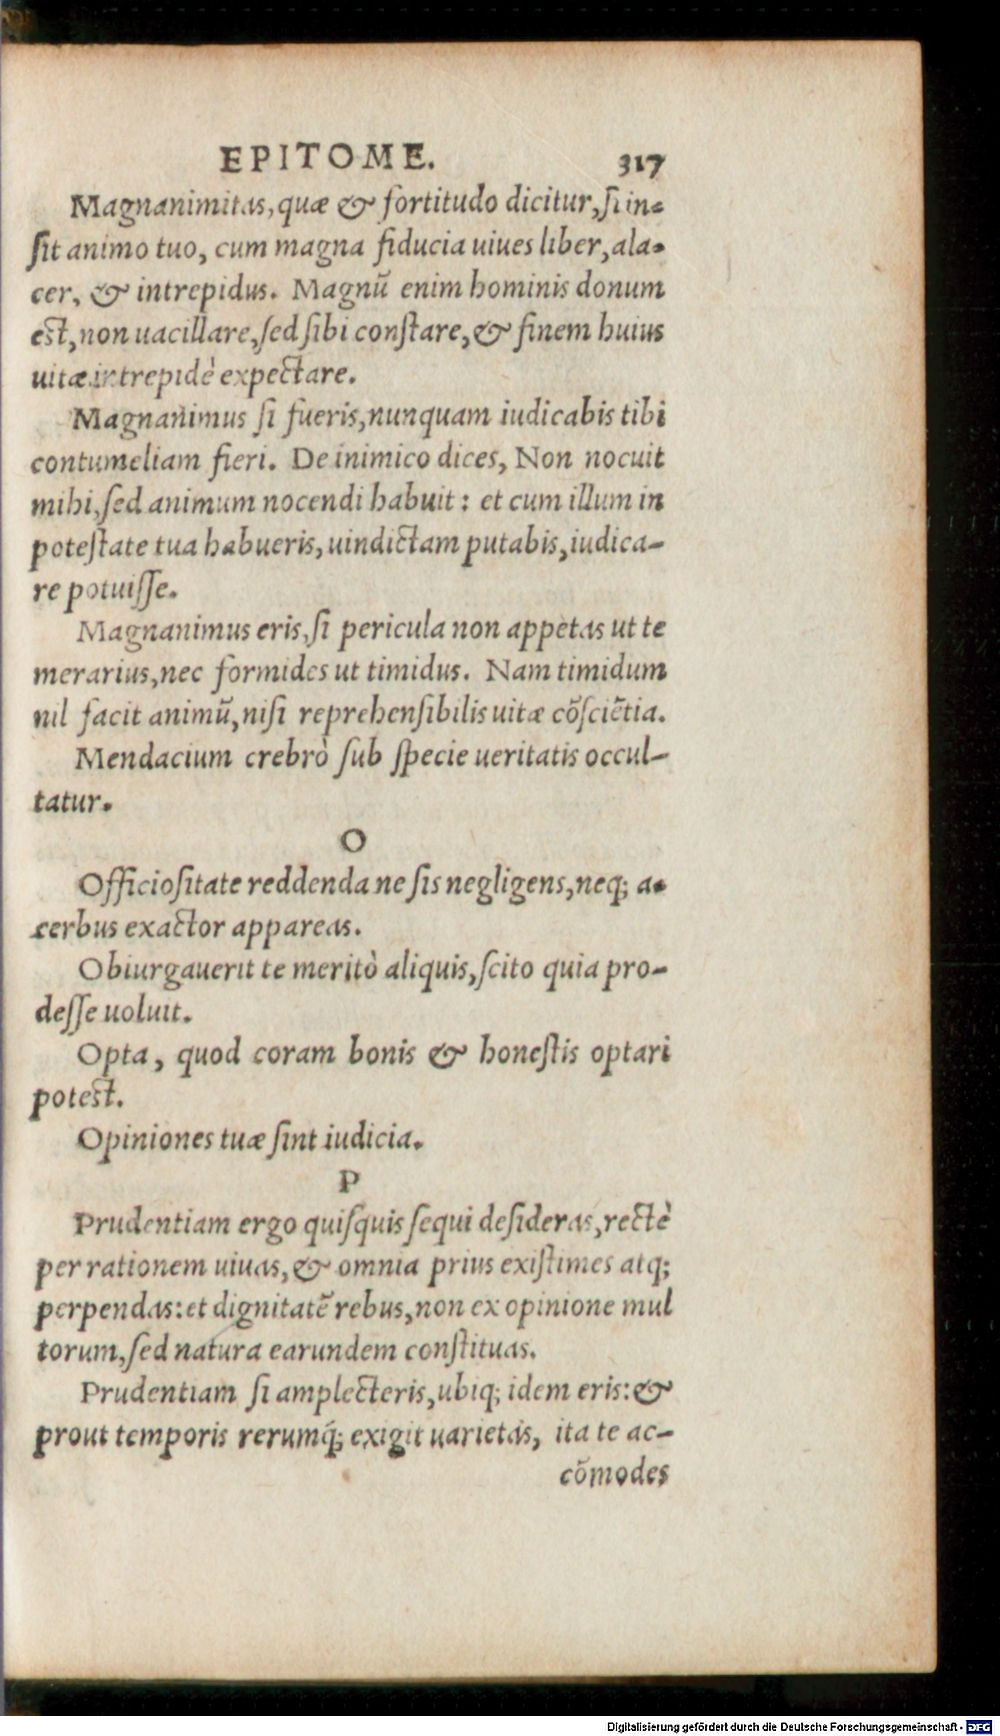 EPITOME. 317
Magnanimitas, quæ & fortitudo dicitur, ſi in-
ſit animo tuo, cum magna fiducia uiues liber, ala-
cer, & intrepidus. Magnũ enim hominis donum
est, non uacillare, ſed ſibi conſtare, & finem huius
uitæ intrepidè expectare.
Magnanimus ſi fueris, nunquam iudicabis tibi
contumeliam fieri. De inimico dices, Non nocuit
mihi, ſed animum nocendi habuit: et cum illum in
poteſtate tua habueris, uindictam putabis, iudica-
re potuiſſe.
Magnanimus eris, ſi pericula non appetas ut te
merarius, nec formides ut timidus. Nam timidum
nil facit animũ, niſi reprehenſibilis uitæ cõſciẽtia.
Mendacium crebrò ſub ſpecie ueritatis occul-
tatur.
O
Officioſitate reddenda ne ſis negligens, neq; a-
cerbus exactor appareas.
Obiurgauerit te meritò aliquis, ſcito quia pro-
deſſe uoluit.
Opta, quod coram bonis & honeſtis optari
potest.
Opiniones tuæ ſint iudicia.
P
Prudentiam ergo quiſquis ſequi deſideras, rectè
per rationem uiuas, & omnia prius exiſtimes atq;
perpendas: et dignitatẽ rebus, non ex opinione mul
torum, ſed natura earundem conſtituas.
Prudentiam ſi amplecteris, ubiq; idem eris: &
prout temporis rerumq́; exigit uarietas, ita te ac-
cõmodes
Digitalisierung gefördert durch die Deutsche Forschungsgemeinschaft - DFG